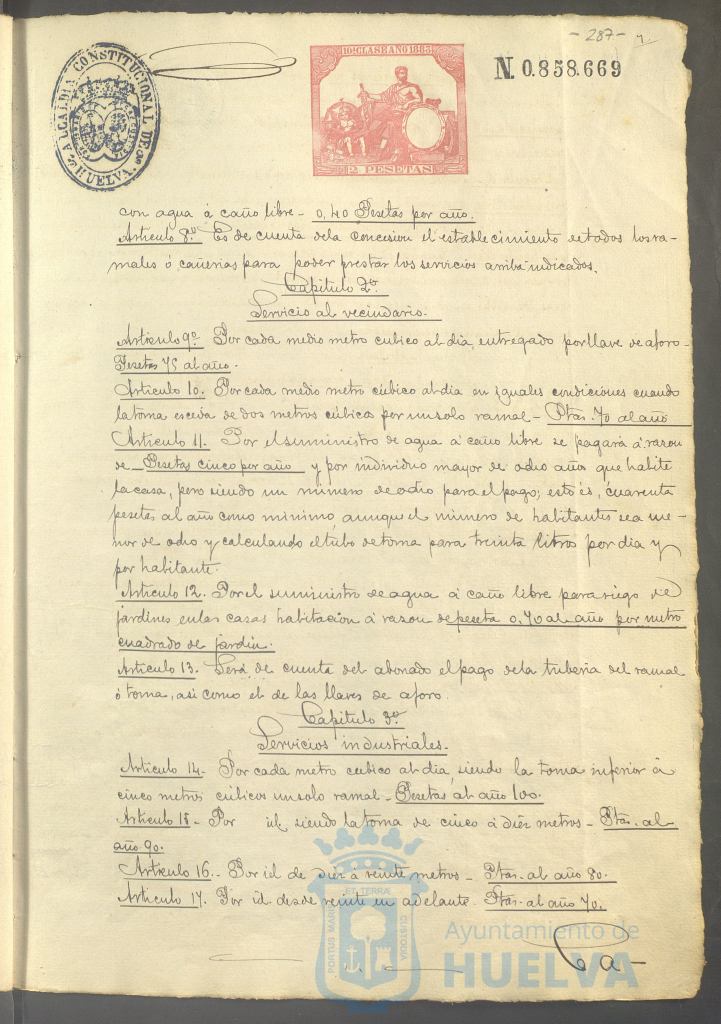 - 287 -
ALCALDIA CONSTITUCIONAL DE HUELVA.
10ª CLASE AÑO 1883
2 PESETAS
N. 0.858.669
con agua á caño libre - 0,40 Pesetas por año.
Articulo 8º Es de cuenta dela concesion el establecimiento detodos losra-
males ó cañerias para poder prestar los servicios arriba indicados.
Capitulo 2º
Servicio al vecindario.
Articulo 9º Por cada medio metro cubico al dia, entregado por llave de aforo-
Pesetas 75 al año.
Articulo 10. Por cada medio metro cúbico al dia en iguales condiciones cuando
la toma esceda de dos metros cúbicos por un solo ramal - Ptas. 70 al año
Articulo 11. Por el suministro de agua á caño libre se pagará á razon
de Pesetas cinco por año y por individuo mayor de ocho años que habite
la casa, pero siendo un minimo de ocho para el pago; esto és, cuarenta
pesetas al año como minimo, aunque el número de habitantes sea me-
nor de ocho y calculando el tubo de toma para treinta litros por dia y
por habitante.
Articulo 12. Por el suministro de agua á caño libre para riego de
jardines en las casas habitacion á razon de peseta 0,70 al año por metro
cuadrado de jardin.
Articulo 13. Será de cuenta del abonado el pago dela tuberia del ramal
ó toma, asi como el de las llaves de aforo.
Capitulo 3º
Servicios industriales.
Articulo 14. Por cada metro cubico al dia, siendo la toma inferior á
cinco metros cúbicos un solo ramal - Pesetas al año 100.
Articulo 15 - Por id. siendo la toma de cinco á diez metros - Ptas. al
año 90.
Articulo 16. - Por id de diez á veinte metros - Ptas. al año 80.
Articulo 17. Por id desde veinte en adelante. Ptas. al año 70.
Ca-
PORTUS MARIS ET TERRAE CUSTODIA
Ayuntamiento de
HUELVA